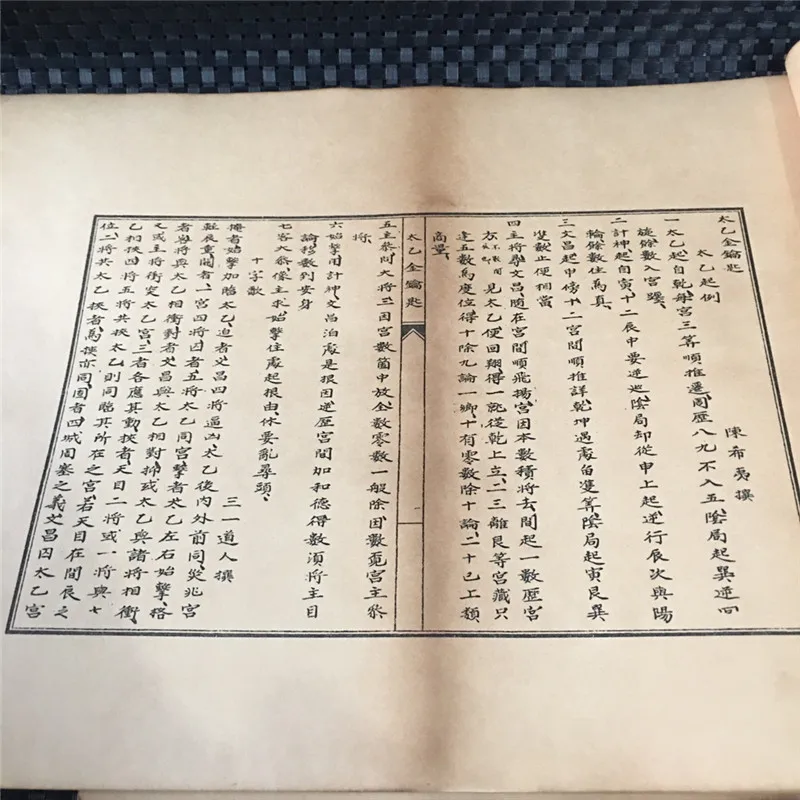 太乙金鑰匙
太乙起例
陳希夷撰
一太乙起自乾每宮三筭順推遷周歷八九不入五陰局起巽逆回
旋餘數入宮躔
二計神起自寅十二辰中要逆巡陰局却從申上起逆行辰次與陽
輪餘數住為真
三文昌起甲傍十二宮間順推詳乾坤遇處皆雙筭陰局起寅艮巽
雙數止便相當
四主將尋文昌隨在宮間順飛揚宮因本數積將去間起一數歷宮
方 見太乙便回翔得一就從乾上立二三離艮等宮藏只
逢五數為座位得十除九論一鄉十有零數除十論二十已上類
商量
太乙金鑰匙
五主參同大將三因宮數箇中放全數零數一般除因數覓宮主參
將
六始擊用計神文昌泊處是根因逆歷宮間加和德得數須將主目
論移數到安身
七客大參像主求始擊住處起根由休要亂尋頭
十字歌
三一道人撰
掩者始擊加臨太乙迫者文昌四將逼凶太乙後內外前同災兆宮
輕辰重關者一宮四將因者五將太乙同宮擊者太乙左右始擊格
者客將與太乙相衝對者文昌與太乙相對抑或太乙與諸將相衝
又或主將衝突太乙宮三者各應其動挾者天目二將或一將與七
乙相挾四將五將共挾太乙則同臨其所在之宮若天目在間辰之
位二將共太乙挾者為挾亦同圍者四城周塞之義文昌囚太乙宮